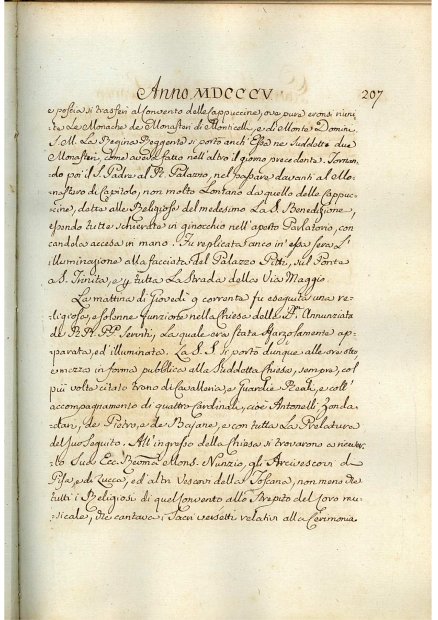 Anno MDCCCV. 207
e poscia si trasferì al Convento delle Cappuccine, ove pure eransi riuni,
te Le Monache de Monasteri di Monticelli, e di Monte Domini.
S. M. La Regina Reggente si portò anch' Essa ne suddetti due
Monasteri, come avea fatto nell' altro il giorno precedente. Tornan,
do poi il S. Padre al R. Palazzo, nel passare davanti al Mo,
nastero di Capitolo, non molto Lontano da quello delle Cappuc,
cine, dette alle Religiose del medesimo La S. Benedizione,
essendo tutte schierate in ginocchio nell' aperto Parlatorio, con
candela accesa in mano. Fu replicata anco in essa sera L'
illuminazione alla facciata del Palazzo Pitti, sul Ponte
a S. Trinita, e p tutta La Strada della Via Maggio.
La mattina di Giovedì 9 corrente fu eseguita una re,
ligiosa, e solenne Funzione nella Chiesa della SS. Annunziata
de RR. PP. Serviti, La quale era stata sfarzosamente ap,
parata, ed illuminata. La S. S. si portò dunque alle ore otto
e mezzo in forma pubblica alla suddetta Chiesa, sempre col
più volte citato treno di Cavalleria, e Guardie Reali, e coll'
accompagnamento di quattro Cardinali, cioè Antonelli, Zonda,
dari, de Pietro, e de Bajane, e con tutta La Prelatura
del suo Seguito. All' ingresso della Chiesa si trovarono a riceve,
rlo Sua Ecc. Revma Mons. Nunzio, gli Arcivescovi di
Pisa, e di Lucca, ed altri Vescovi della Toscana, non meno che
tutti i Religiosi di quel Convento allo strepito del Coro mu,
sicale, che cantava i Sacri versetti relativi alla Cerimonia